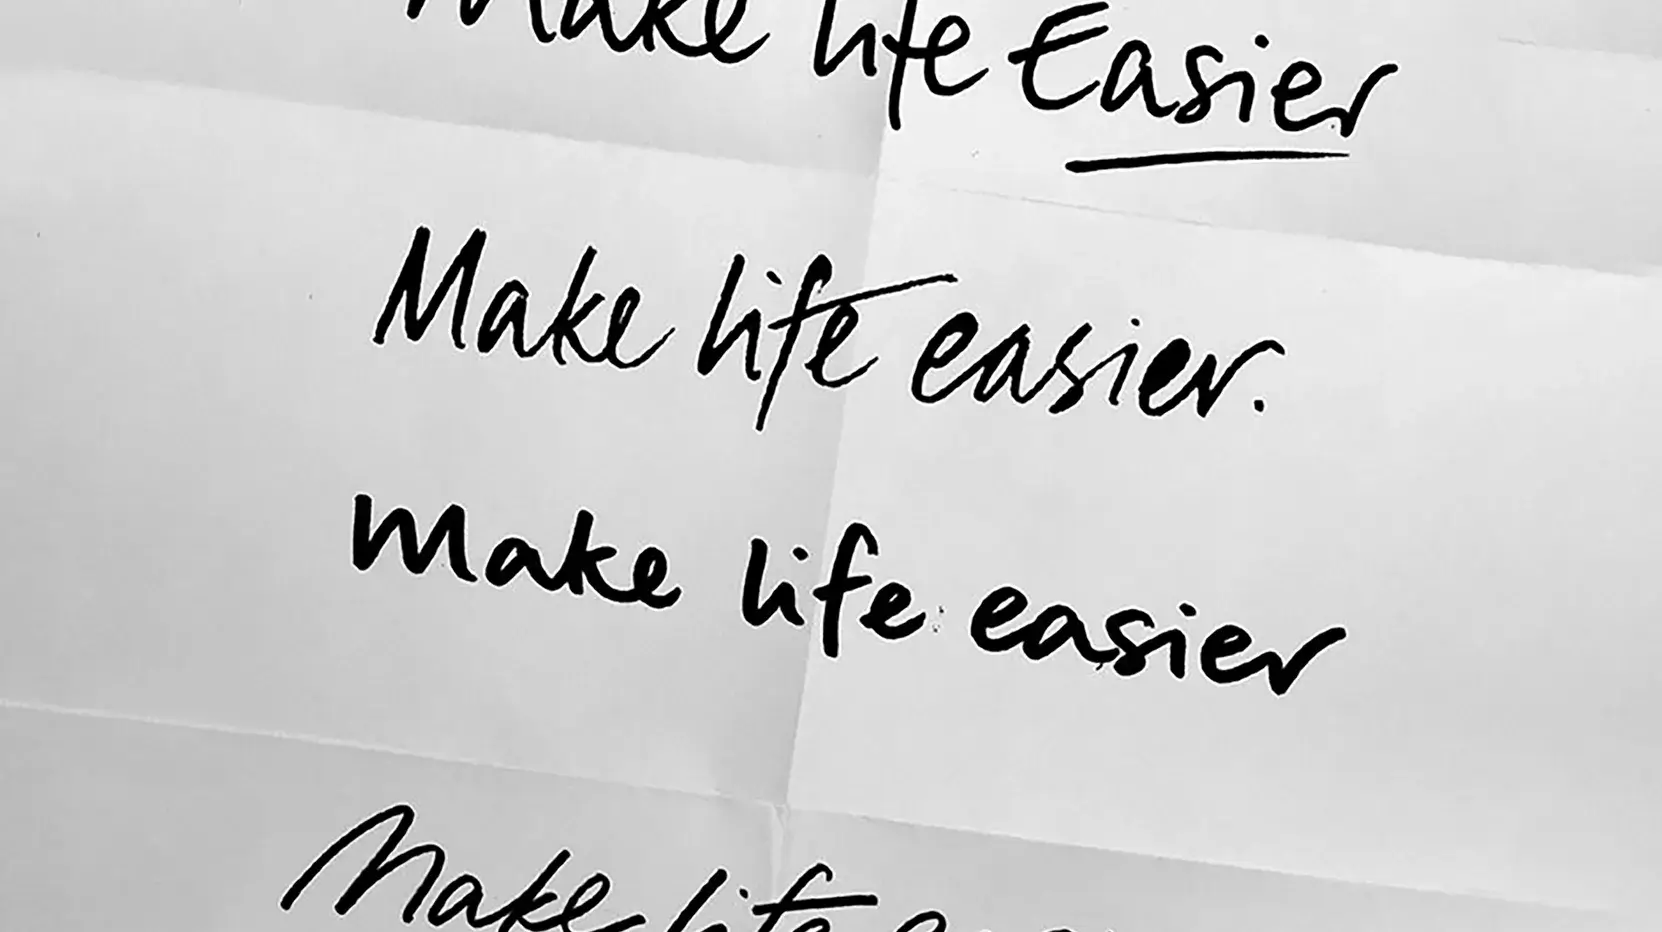 Make life Easier
Make life easier.
make life easier
Make life